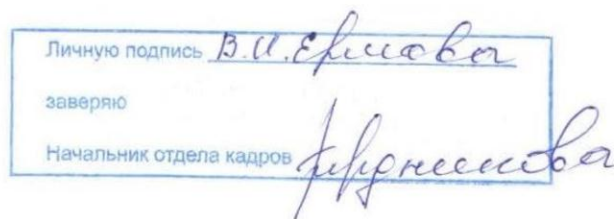 Личную подпись В.И. Ермакова
заверяю
Начальник отдела кадров